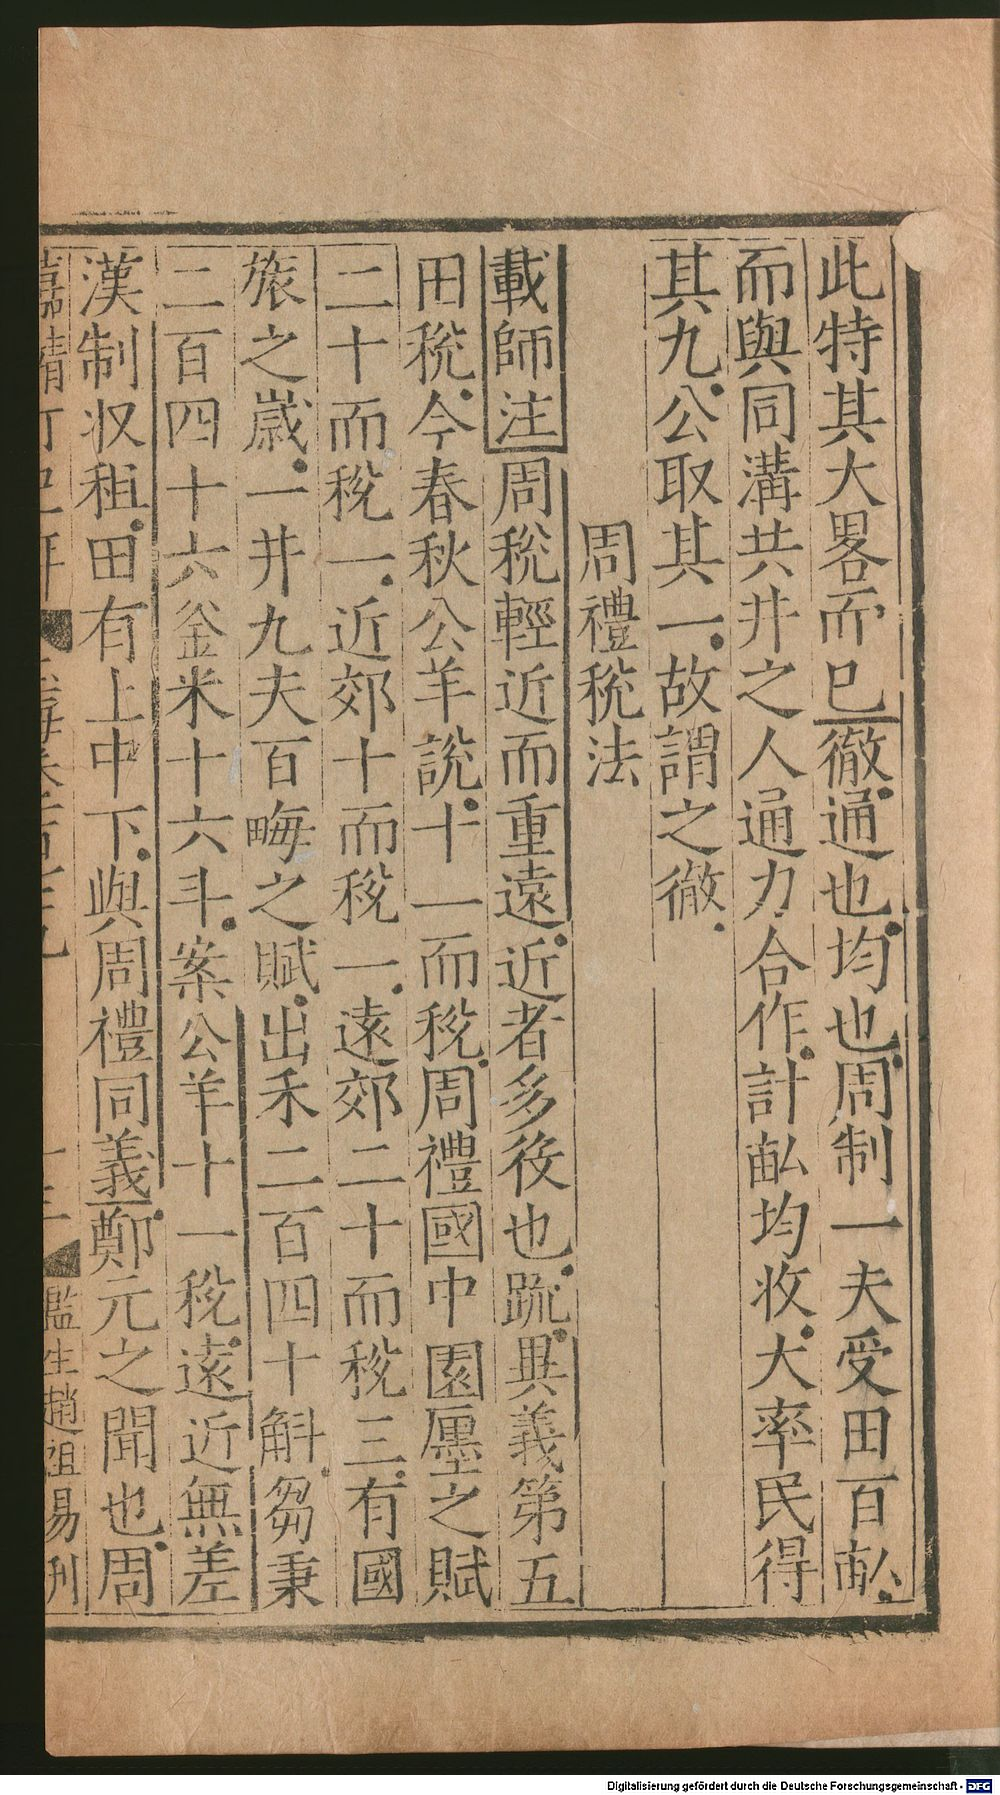 此特其大畧而已徹通也均也周制一夫受田百畝
而與同溝共井之人通力合作計畝均收大率民得
其九公取其一故謂之徹
周禮稅法
載師注周稅輕近而重遠近者多役也疏異義第五
田稅今春秋公羊說十一而稅周禮國中園廛之賦
二十而稅一近郊十而稅一遠郊二十而稅三有國
旅之歲一井九夫百畮之賦出禾二百四十斛芻秉
二百四十六釜米十六斗案公羊十一稅遠近無差
漢制収租田有上中下與周禮同義鄭元之聞也周
監生趙祖易刋
Digitalisierung gefördert durch die Deutsche Forschungsgemeinschaft - DFG